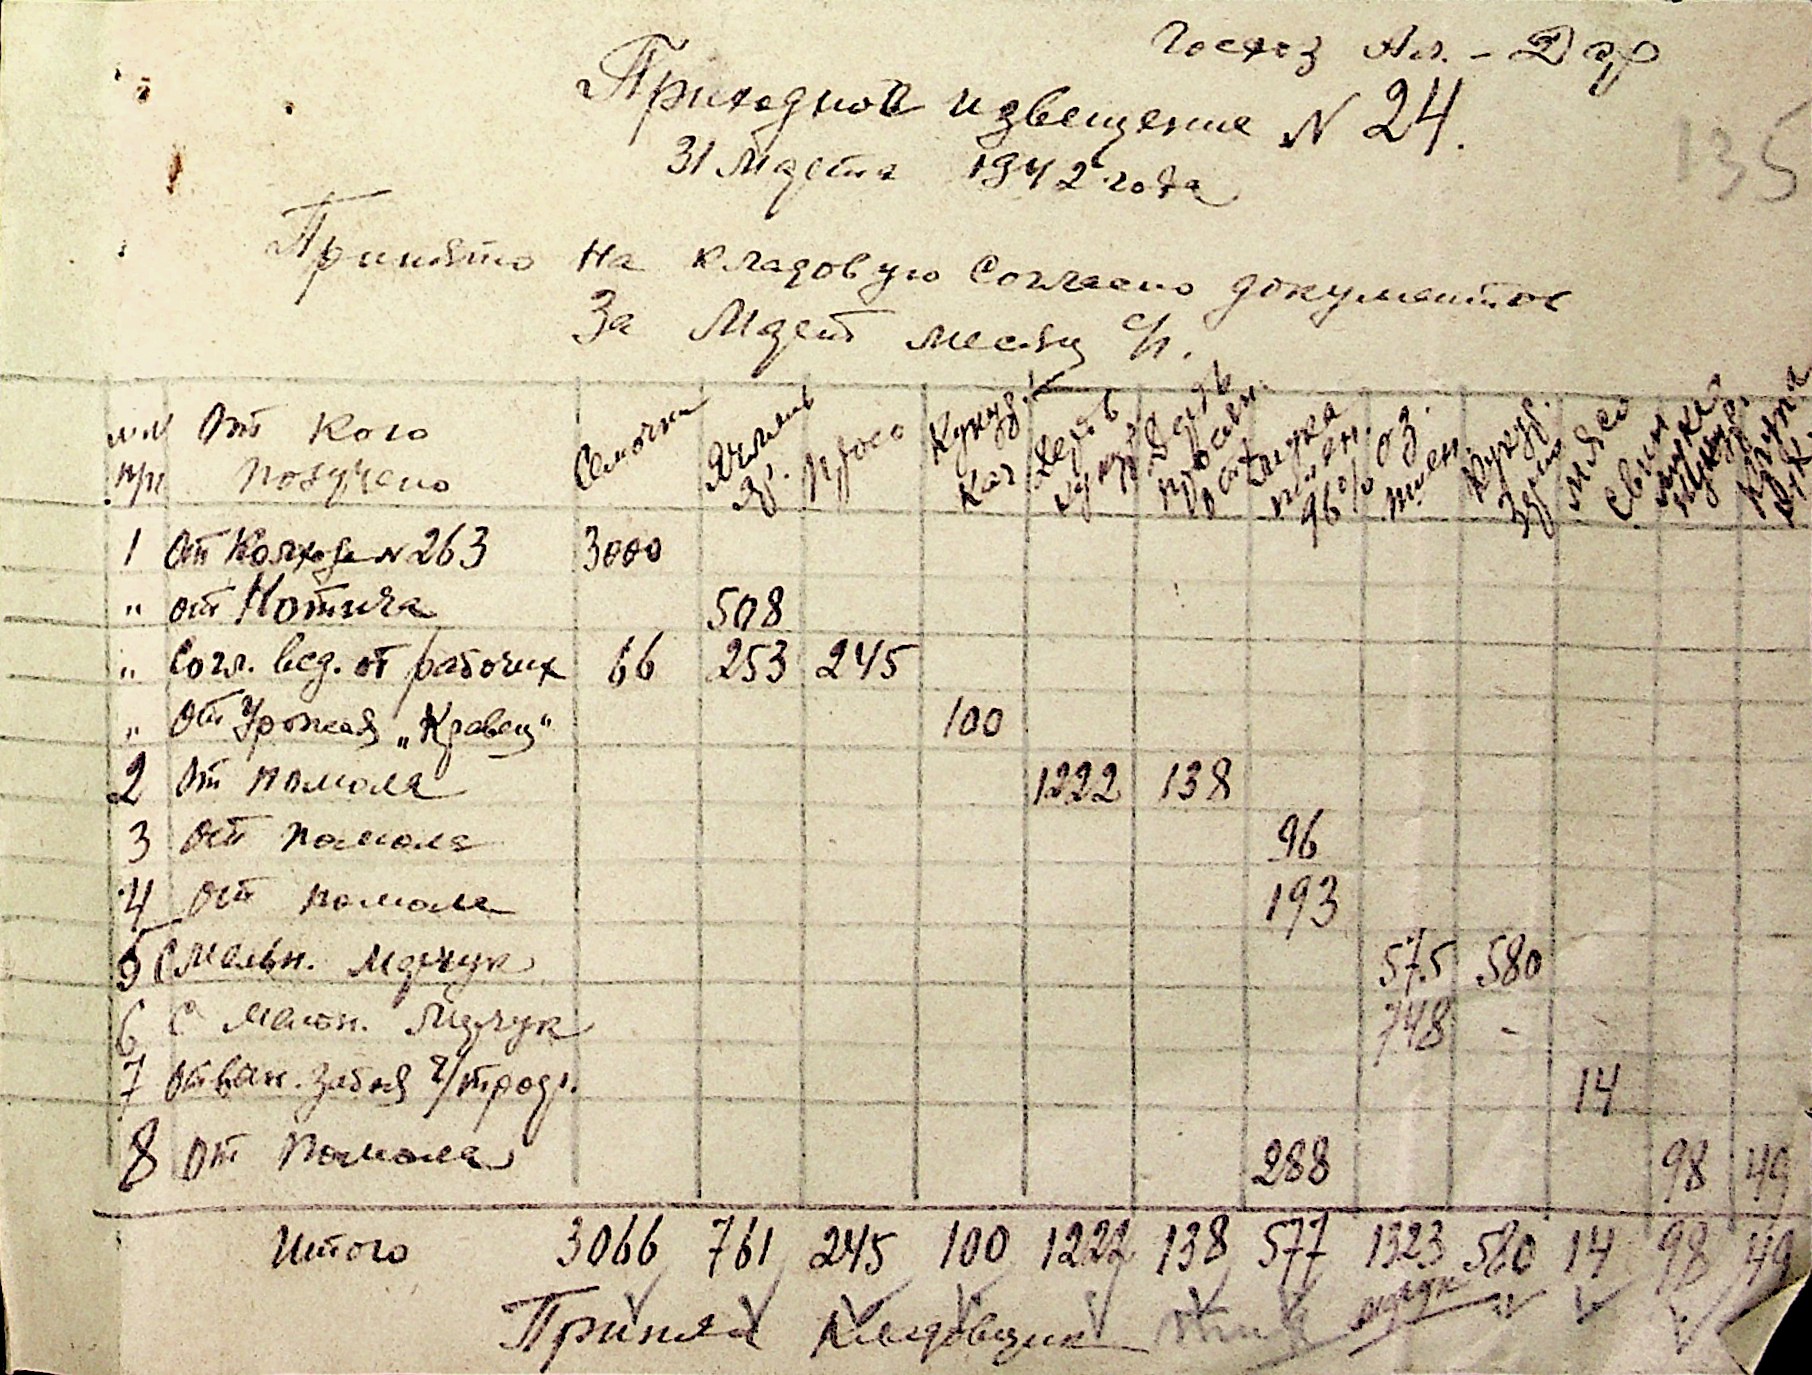 Госхоз Ал. - Дар
Приходное извещение N 24.
135
31 Марта 1942 года
Принято на кладовую Согласно документов
За Март месяц с/г.
п/п От кого получено Семочки Ячмень зр. Просо Кукур. кач Дерть кукур Дерть просян. Мука пшен. 96% Оз. пшен. Кукур. зерно Мясо свин Мука кукур. Крупа кук.
1 От Колхоза N 263 3000
" от Нотича 508
" Согл. вед. от рабочих 66 253 245
" От Урожая „Кравец" 100
2 От помола 1222 138
3 От помола 96
4 От помола 193
5 С мельн. Марчук 575 580
6 С мельн. Марчук 748 -
7 От 14
8 От Помола 288 98 49
Итого 3066 761 245 100 1222 138 577 1323 580 14 98 49
Принял Кладовщик